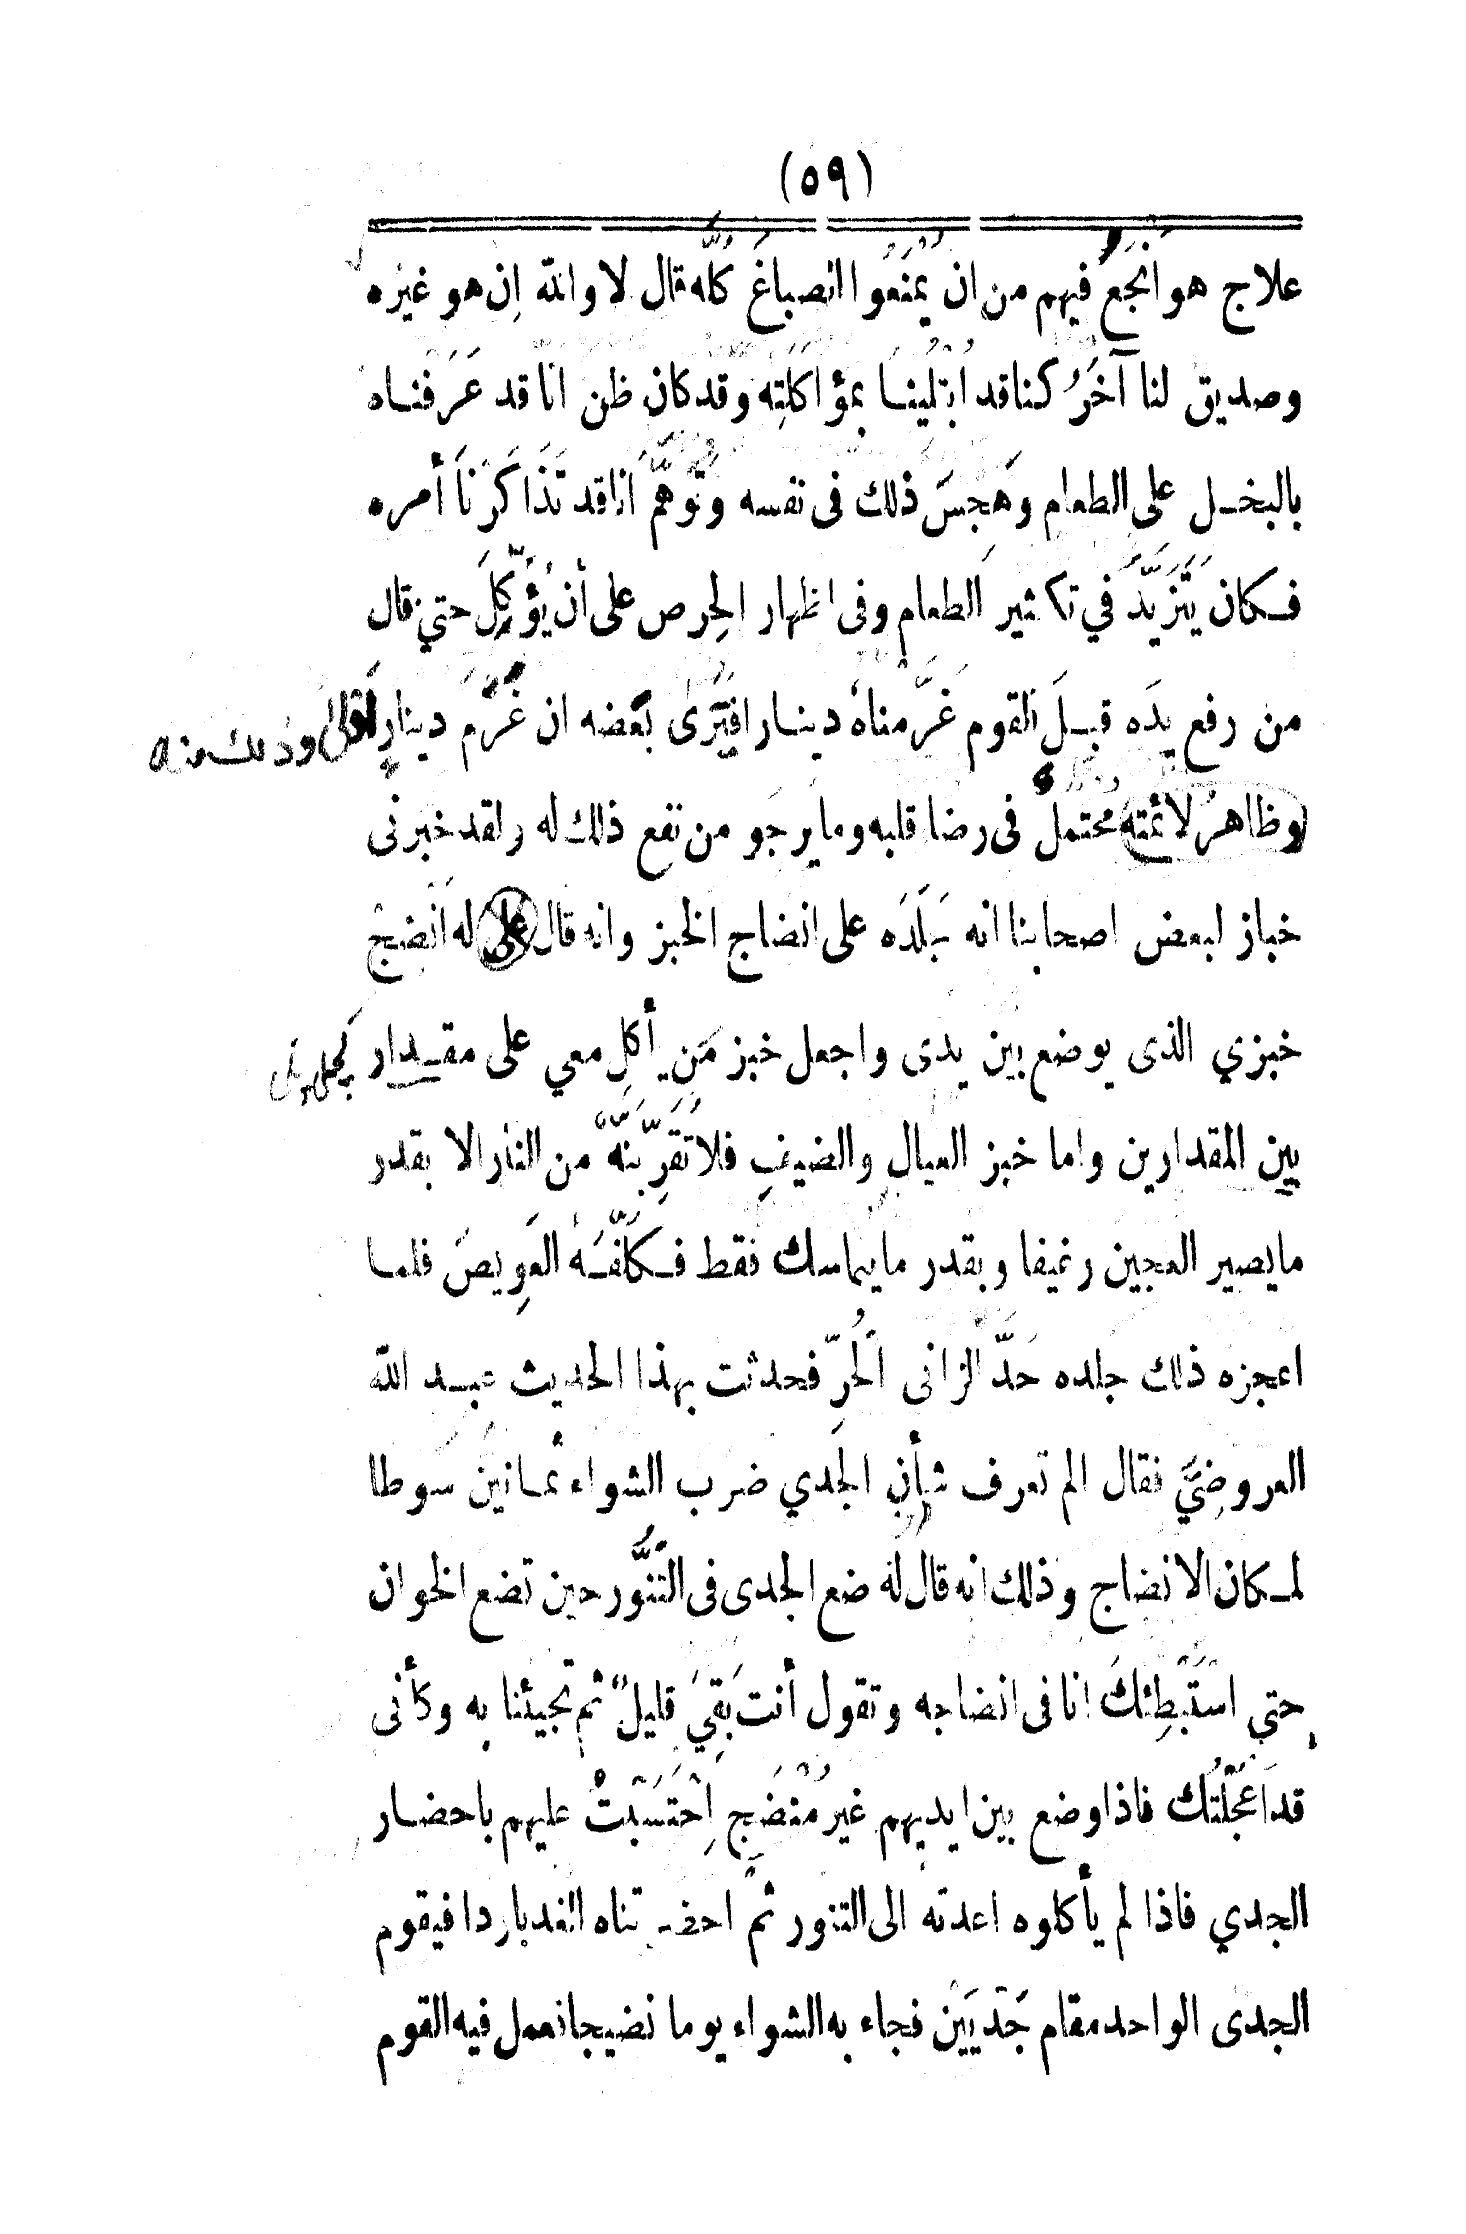 (٥٩)
علاج هو أَنْجَعُ فيهم من ان يُمْنَعُوا الصباغَ كُلَّه قال لا والله اِن هو غيره
وصديق لنا آخَرُ كنا قد ابْتُلِينا بمؤاكَلَتِه وقد كان ظن انا قد عَرَفْناه
بالبخل على الطعام وهَجِسَ ذلك فى نفسه وتَوَهَّمَ اَنا قد تَذَاكَرْنا أمره
فكان يَتَزَيَّدُ في تكثير الطعام وفى اظهار الحِرص على أن يُؤكلَ حتي قال
من رفع يدَه قبلَ القوم غَرَّمْناهُ دينارا فَيُرَى بعضه ان غُرْمَ دينارٍ
وظاهرُ لائمته محتملٌ فى رضا قلبه وما يرجو من نفع ذلك له ولقد خبرنى
خباز لبعض اصحابنا انه جَلَدَه على انضاج الخبز وانه قال على له أَنْضِجْ
خبزي الذى يوضع بين يدى واجعل خبز مَن يأكل معي على مقدار
بين المقدارين واما خبز العيالِ والضيفِ فلا تُقَرِّبَنَّهُ من النار الا بقدر
ما يصير العجين رغيفا وبقدر ما يتماسك فقط فكلَّفَهُ العَوِيصَ فلما
اعجزه ذلك جلده حَدَّ الزانى الحُرِّ فحدثت بهذا الحديث عبد الله
العروضِيَّ فقال الم تعرف شأنَ الجَدي ضرب الشواء ثمانين سَوطا
لمكان الانضاج وذلك انه قال له ضع الجدى فى التَّنُّور حين تضع الخوان
حتي اسْتَبْطِئَكَ انا فى انضاجه وتقول أنت بَقِيَ قليلٌ ثم تجيئنا به وكأنى
قد اَعْجَلْتُك فاذا وضع بين ايديهم غير مُنْضَجٍ اِحْتَسَبْتُ عليهم باحضار
الجدي فاذا لم يأكلوه اعدته الى التنور ثمَّ احضرتناه الغد باردا فيقوم
الجدى الواحد مقام جَدْيَيْن فجاء به الشواء يوما نضيجا فعمل فيه القوم